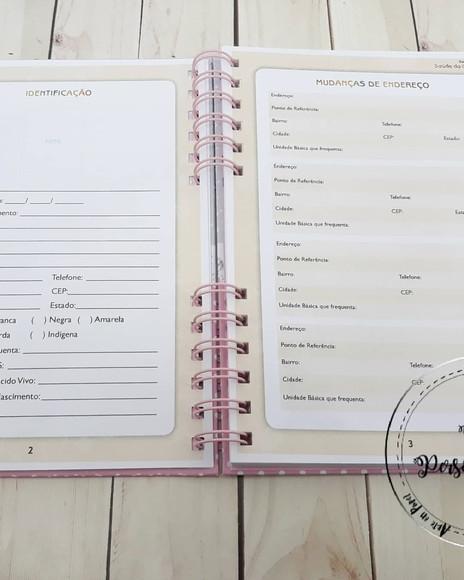 IDENTIFICAÇÃO
FOTO
: ____/ ____/ ____
Telefone:
CEP:
Estado:
anca ( ) Negra ( ) Amarela
rda ( ) Indígena
uenta:
S:
cido Vivo:
ascimento:
2
Saúde da
MUDANÇAS DE ENDEREÇO
Endereço:
Ponto de Referência:
Bairro: Telefone:
Cidade: CEP: Estado:
Unidade Básica que frequenta:
Endereço:
Ponto de Referência:
Bairro: Telefone:
Cidade: CEP:
Unidade Básica que frequenta:
Endereço:
Ponto de Referência:
Bairro: Telefone:
Cidade: CEP:
Unidade Básica que frequenta:
Endereço:
Ponto de Referência:
Bairro: Telefone:
Cidade: CEP:
Unidade Básica que frequenta:
3
Arte em Papel